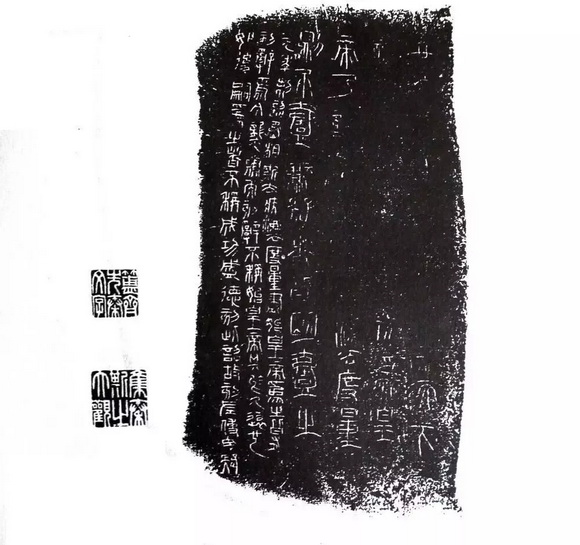 廿
天
號為皇
帝乃詔
法度量
則不壹歉疑者皆明壹之
元年制詔丞相斯去疾法度量盡始皇帝為之皆有
刻辭焉今襲號而刻辭不稱始皇帝其於久遠也
如後嗣為之者不稱成功盛德刻此詔故刻左使毋疑
簠齋
先秦
文字
集秦
斯之
大觀